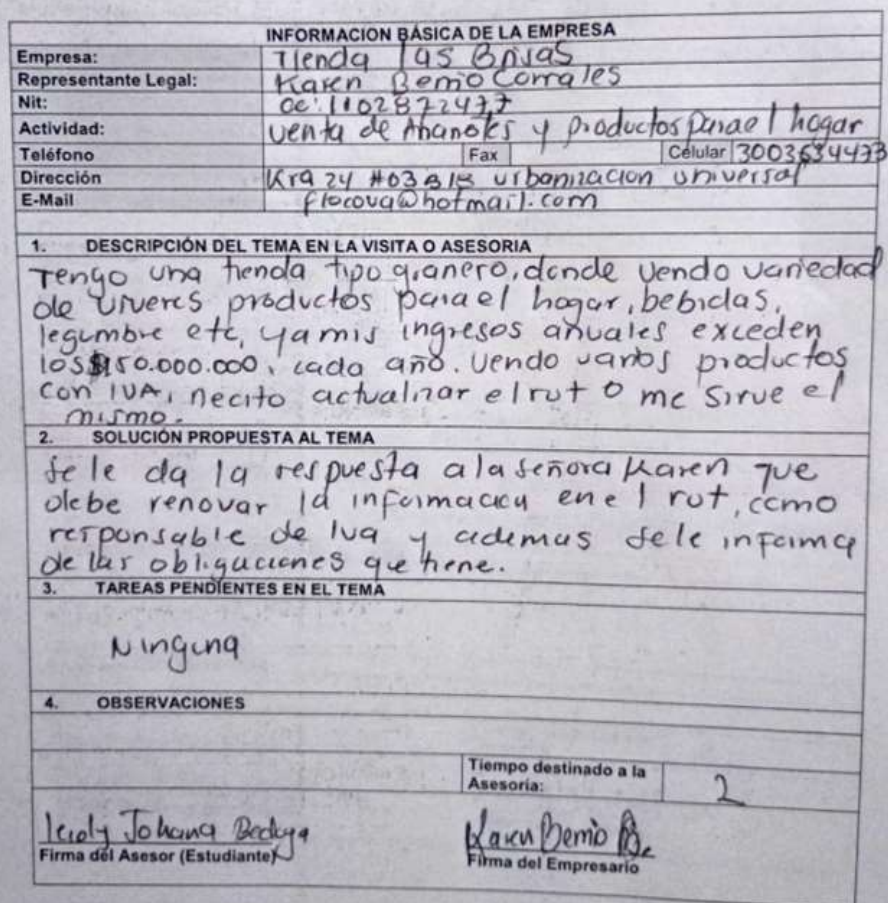 INFORMACION BÁSICA DE LA EMPRESA
Empresa: Tienda las Brisas
Representante Legal: Karen Berrio Corrales
Nit: cc: 1102872477
Actividad: venta de Abarrotes y productos para el hogar
Teléfono Fax Célular 3003634473
Dirección Kra 24 #03 B18 urbanizacion universal
E-Mail flocova@hotmail.com
1. DESCRIPCIÓN DEL TEMA EN LA VISITA O ASESORIA
Tengo una tienda tipo granero, donde vendo variedad
de viveres productos para el hogar, bebidas,
legumbre etc, ya mis ingresos anuales exceden
los $150.000.000, cada año. vendo varios productos
con IVA, necito actualizar el rut o me sirve el
mismo.
2. SOLUCIÓN PROPUESTA AL TEMA
se le da la respuesta a la señora Karen que
debe renovar la informacion en el rut, como
responsable de Iva y ademas se le informa
de las obligaciones que tiene.
3. TAREAS PENDIENTES EN EL TEMA
Ninguna
4. OBSERVACIONES
Tiempo destinado a la
Asesoría: 2
Johana Bedoya Karen Berrio
Firma del Asesor (Estudiante) Firma del Empresario